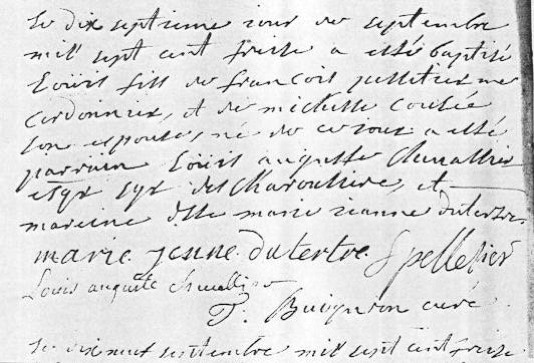 Le dix septieme jour de septembre
mil sept cent treize a esté baptisé
Loüis fils de françois pelletier me
Cordonnier, et de michelle Coulée
son espouse, né de ce jour a esté
parrain Loüis auguste Chevallier
esqr sgr des
mareine dlle marie jeanne dutertre
marie jenne dutertre Spelletier
Louis auguste chevallier
curé
Le dix neuf septembre mil sept cent treize